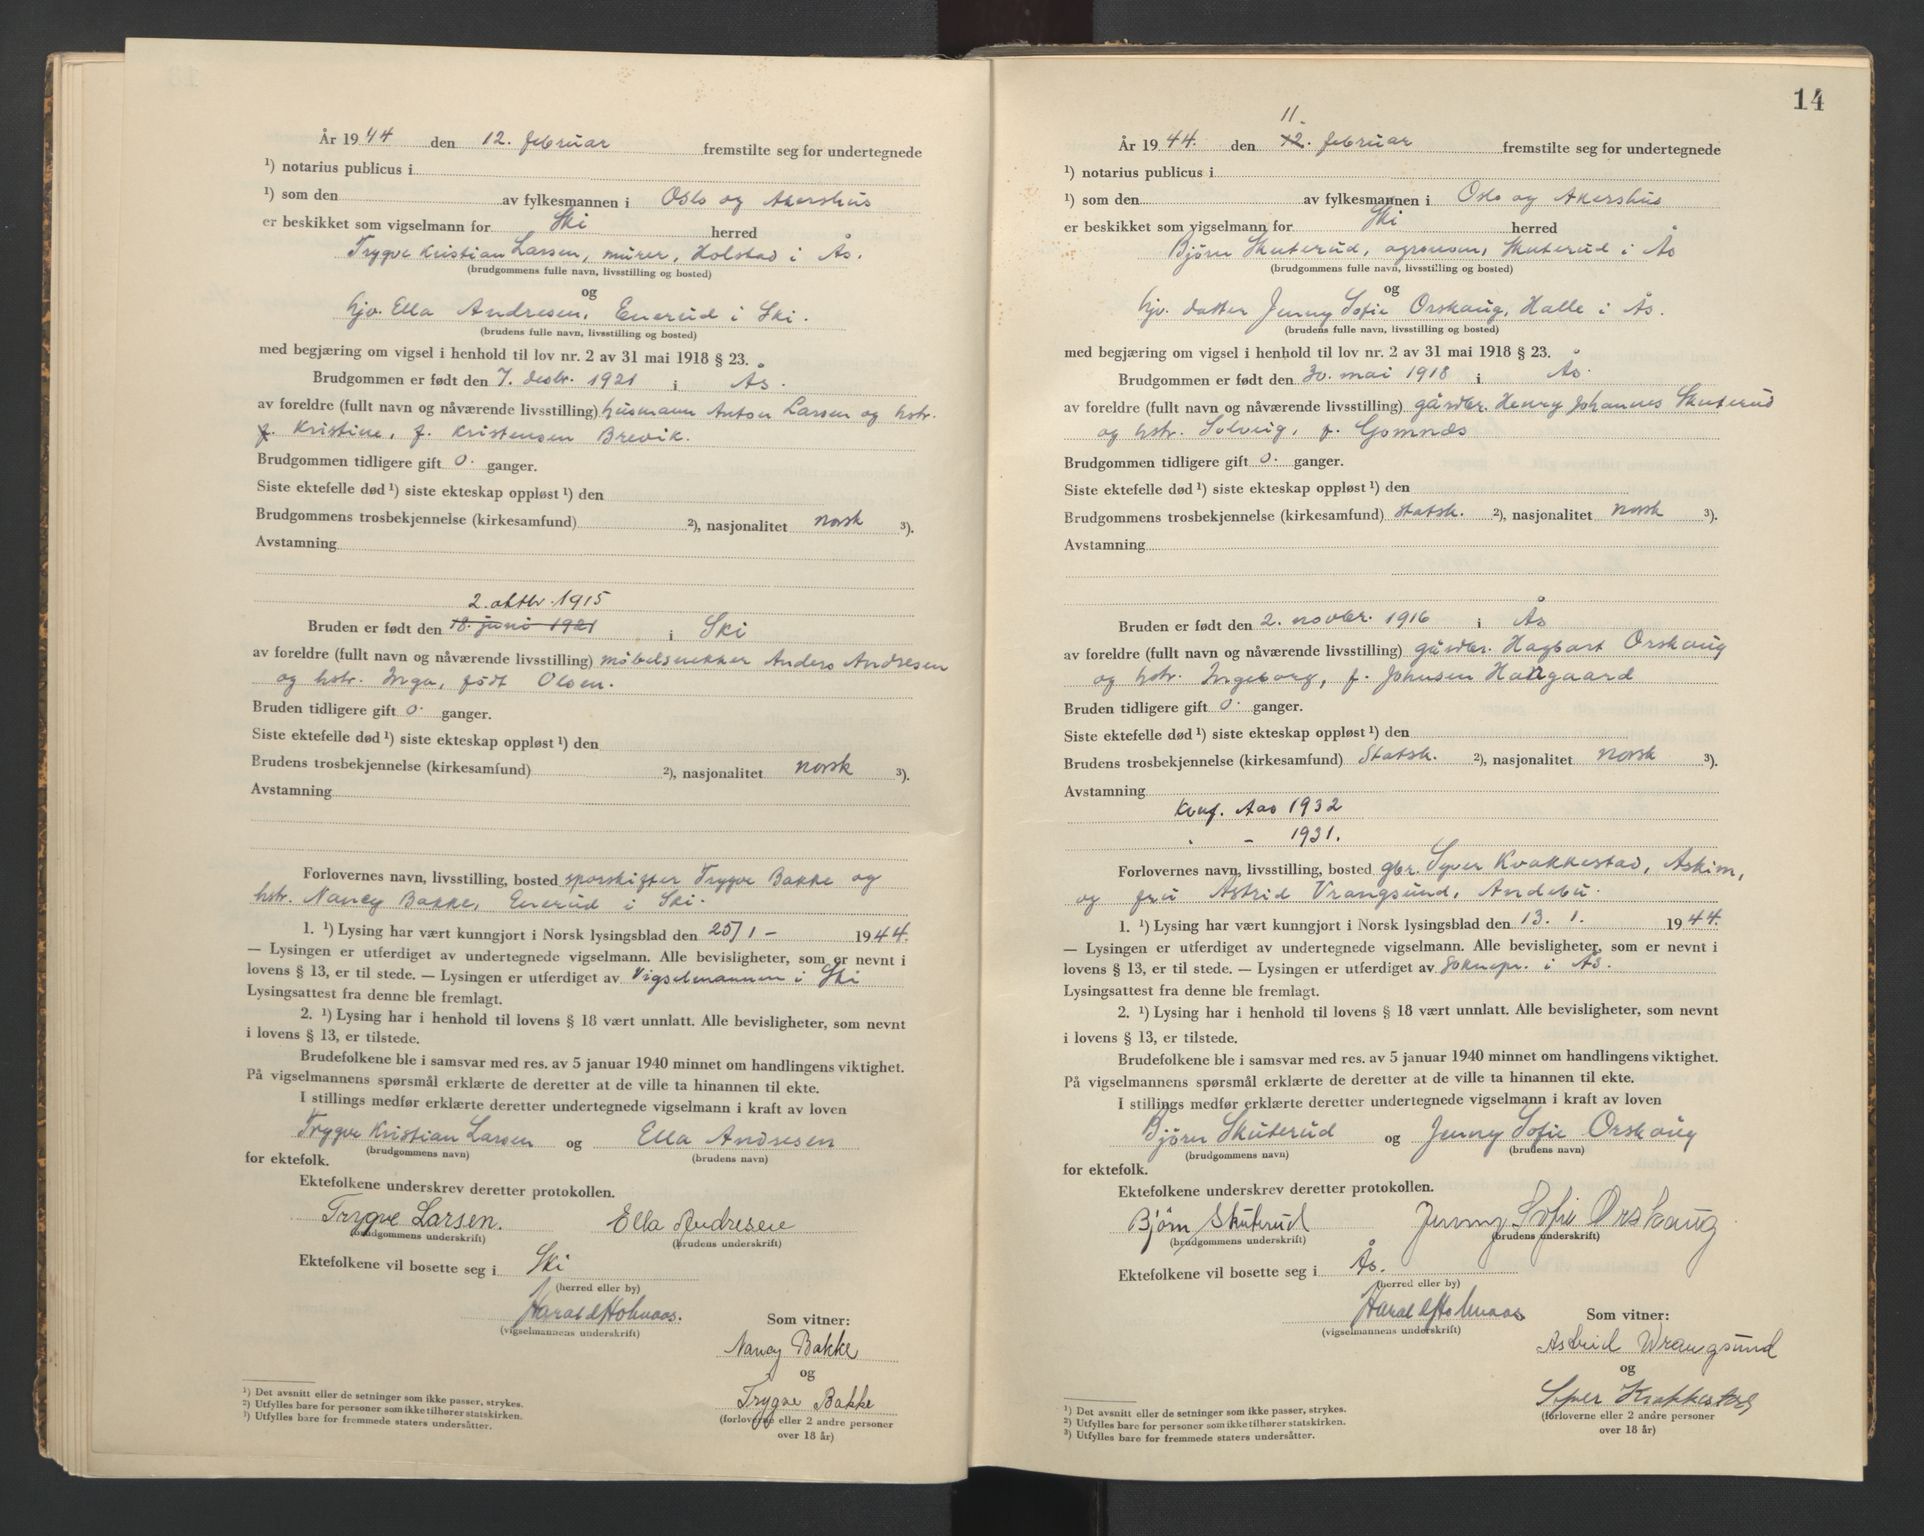 År 1944 den 12. februar fremstilte seg for undertegnede
¹) notarius publicus i
¹) som den av fylkesmannen i Oslo og Akershus
er beskikket som vigselmann for Ski herred
Trygve Kristian Larsen, murer, Holstad i Ås.
(brudgommens fulle navn, livsstilling og bosted)
og
hjv. Ella Andresen, Enerud i Ski.
(brudens fulle navn, livsstilling og bosted)
med begjæring om vigsel i henhold til lov nr. 2 av 31 mai 1918 § 23.
Brudgommen er født den 7. desbr. 1921 i Ås.
av foreldre (fullt navn og nåværende livsstilling) husmann Anton Larsen og hstr.
f. Kristine, f. Kristensen Brevik.
Brudgommen tidligere gift 0. ganger.
Siste ektefelle død ¹) siste ekteskap oppløst ¹) den
Brudgommens trosbekjennelse (kirkesamfund) ²), nasjonalitet norsk ³).
Avstamning
2. oktbr. 1915
Bruden er født den 18. juni 1921 i Ski
av foreldre (fullt navn og nåværende livsstilling) møbelsnekker Anders Andresen
og hstr. Inga, født Olsen.
Bruden tidligere gift 0. ganger.
Siste ektefelle død ¹) siste ekteskap oppløst ¹) den
Brudens trosbekjennelse (kirkesamfund) ²), nasjonalitet norsk ³).
Avstamning
Forlovernes navn, livsstilling, bosted sporskifter Trygve Bakke og
hstr. Nancy Bakke, Enerud i Ski.
1. ¹) Lysing har vært kunngjort i Norsk lysingsblad den 25/1 - 1944.
— Lysingen er utferdiget av undertegnede vigselmann. Alle bevisligheter, som er nevnt i
lovens § 13, er til stede. — Lysingen er utferdiget av Vigselmannen i Ski
Lysingsattest fra denne ble fremlagt.
2. ¹) Lysing har i henhold til lovens § 18 vært unnlatt. Alle bevisligheter, som nevnt
i lovens § 13, er tilstede.
Brudefolkene ble i samsvar med res. av 5 januar 1940 minnet om handlingens viktighet.
På vigselmannens spørsmål erklærte de deretter at de ville ta hinannen til ekte.
I stillings medfør erklærte deretter undertegnede vigselmann i kraft av loven
Trygve Kristian Larsen og Ella Andresen
(brudgommens navn) (brudens navn)
for ektefolk.
Ektefolkene underskrev deretter protokollen.
Trygve Larsen. Ella Andresen
(brudgommens underskrift) (brudens underskrift)
Ektefolkene vil bosette seg i Ski
(herred eller by)
Harald Holmaas.
(vigselmannens underskrift)
Som vitner:
Nancy Bakke
og
Trygve Bakke
(forloverne eller 2 andre personer
over 18 år)
¹) Det avsnitt eller de setninger som ikke passer, strykes.
²) Utfylles bare for personer som ikke tilhører statskirken.
³) Utfylles bare for fremmede staters undersåtter.
14
11.
År 1944. den 12. februar fremstilte seg for undertegnede
¹) notarius publicus i
¹) som den av fylkesmannen i Oslo og Akershus
er beskikket som vigselmann for Ski herred
Bjørn Skuterud, agronom, Skuterud i Ås
(brudgommens fulle navn, livsstilling og bosted)
og
hjv. datter Jenny Sofie Orskaug, Halle i Ås.
(brudens fulle navn, livsstilling og bosted)
med begjæring om vigsel i henhold til lov nr. 2 av 31 mai 1918 § 23.
Brudgommen er født den 30. mai 1918 i Ås.
av foreldre (fullt navn og nåværende livsstilling) gårdbr. Henry Johannes Skuterud
og hstr. Solveig, f. Gomnæs
Brudgommen tidligere gift 0. ganger.
Siste ektefelle død ¹) siste ekteskap oppløst ¹) den
Brudgommens trosbekjennelse (kirkesamfund) statsk. ²), nasjonalitet norsk ³).
Avstamning
Bruden er født den 2. novbr. 1916 i Ås
av foreldre (fullt navn og nåværende livsstilling) gårdbr. Hagbart Orskaug
og hstr. Ingeborg, f. Johnsen Haugaard
Bruden tidligere gift 0. ganger.
Siste ektefelle død ¹) siste ekteskap oppløst ¹) den
Brudens trosbekjennelse (kirkesamfund) Statsk. ²), nasjonalitet norsk ³).
Avstamning
Konf. Aas 1932
" - 1931.
Forlovernes navn, livsstilling, bosted gbr. Syver Kvakkestad, Askim,
og fru Astrid Vrangsund, Andebu.
1. ¹) Lysing har vært kunngjort i Norsk lysingsblad den 13. 1. 1944.
— Lysingen er utferdiget av undertegnede vigselmann. Alle bevisligheter, som er nevnt i
lovens § 13, er til stede. — Lysingen er utferdiget av soknepr. i Ås.
Lysingsattest fra denne ble fremlagt.
2. ¹) Lysing har i henhold til lovens § 18 vært unnlatt. Alle bevisligheter, som nevnt
i lovens § 13, er tilstede.
Brudefolkene ble i samsvar med res. av 5 januar 1940 minnet om handlingens viktighet.
På vigselmannens spørsmål erklærte de deretter at de ville ta hinannen til ekte.
I stillings medfør erklærte deretter undertegnede vigselmann i kraft av loven
Bjørn Skuterud og Jenny Sofie Orskaug
(brudgommens navn) (brudens navn)
for ektefolk.
Ektefolkene underskrev deretter protokollen.
Bjørn Skuterud Jenny Sofie Orskaug
(brudgommens underskrift) (brudens underskrift)
Ektefolkene vil bosette seg i Ås.
(herred eller by)
Harald Holmaas
(vigselmannens underskrift)
Som vitner:
Astrid Wrangsund
og
Syver Kvakkestad
(forloverne eller 2 andre personer
over 18 år)
¹) Det avsnitt eller de setninger som ikke passer, strykes.
²) Utfylles bare for personer som ikke tilhører statskirken.
³) Utfylles bare for fremmede staters undersåtter.